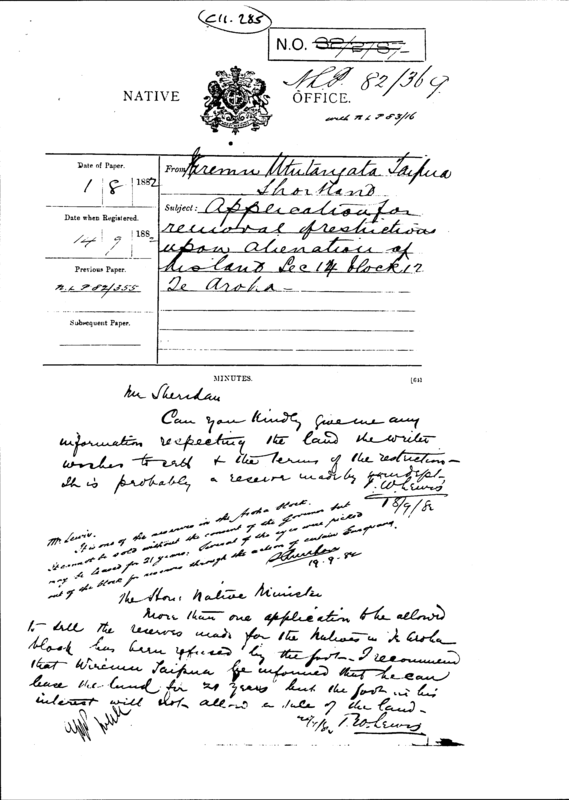 C11.285
N.O. 82/2787
NLP 82/369
NATIVE OFFICE.
with NLP 83/16
Date of Paper.
1 | 8 | 1882
Date when Registered.
14 | 9 | 1882
Previous Paper.
NLP 82/355
Subsequent Paper.
From Taipua
Shortland
Subject: Application for
removal of restrictions
upon alienation of
his land Sec 14 block 12
Te Aroha —
MINUTES.
Mr Sheridan
Can you kindly give me any
information respecting the land the writer
wishes to sell & the terms of the restriction —
It is probably a reserve made by your dept —
T. W. Lewis
18/9/82
Mr Lewis.
It is one of the reserves in the Aroha block.
It cannot be sold without the consent of the Governor but
may be leased for 21 years. Several of the were picked
out of the block for reserves through the action of certain Europeans.
Sheridan
19.9.82
The Hon: Native Minister
More than one application to be allowed
to sell the reserves made for the Natives in Te Aroha
block has been refused by the Govt. I recommend
that Wiremu Taipua be informed that he can
lease the land for 21 years but the Govt in his
interest will not allow a sale of the land —
T. W. Lewis